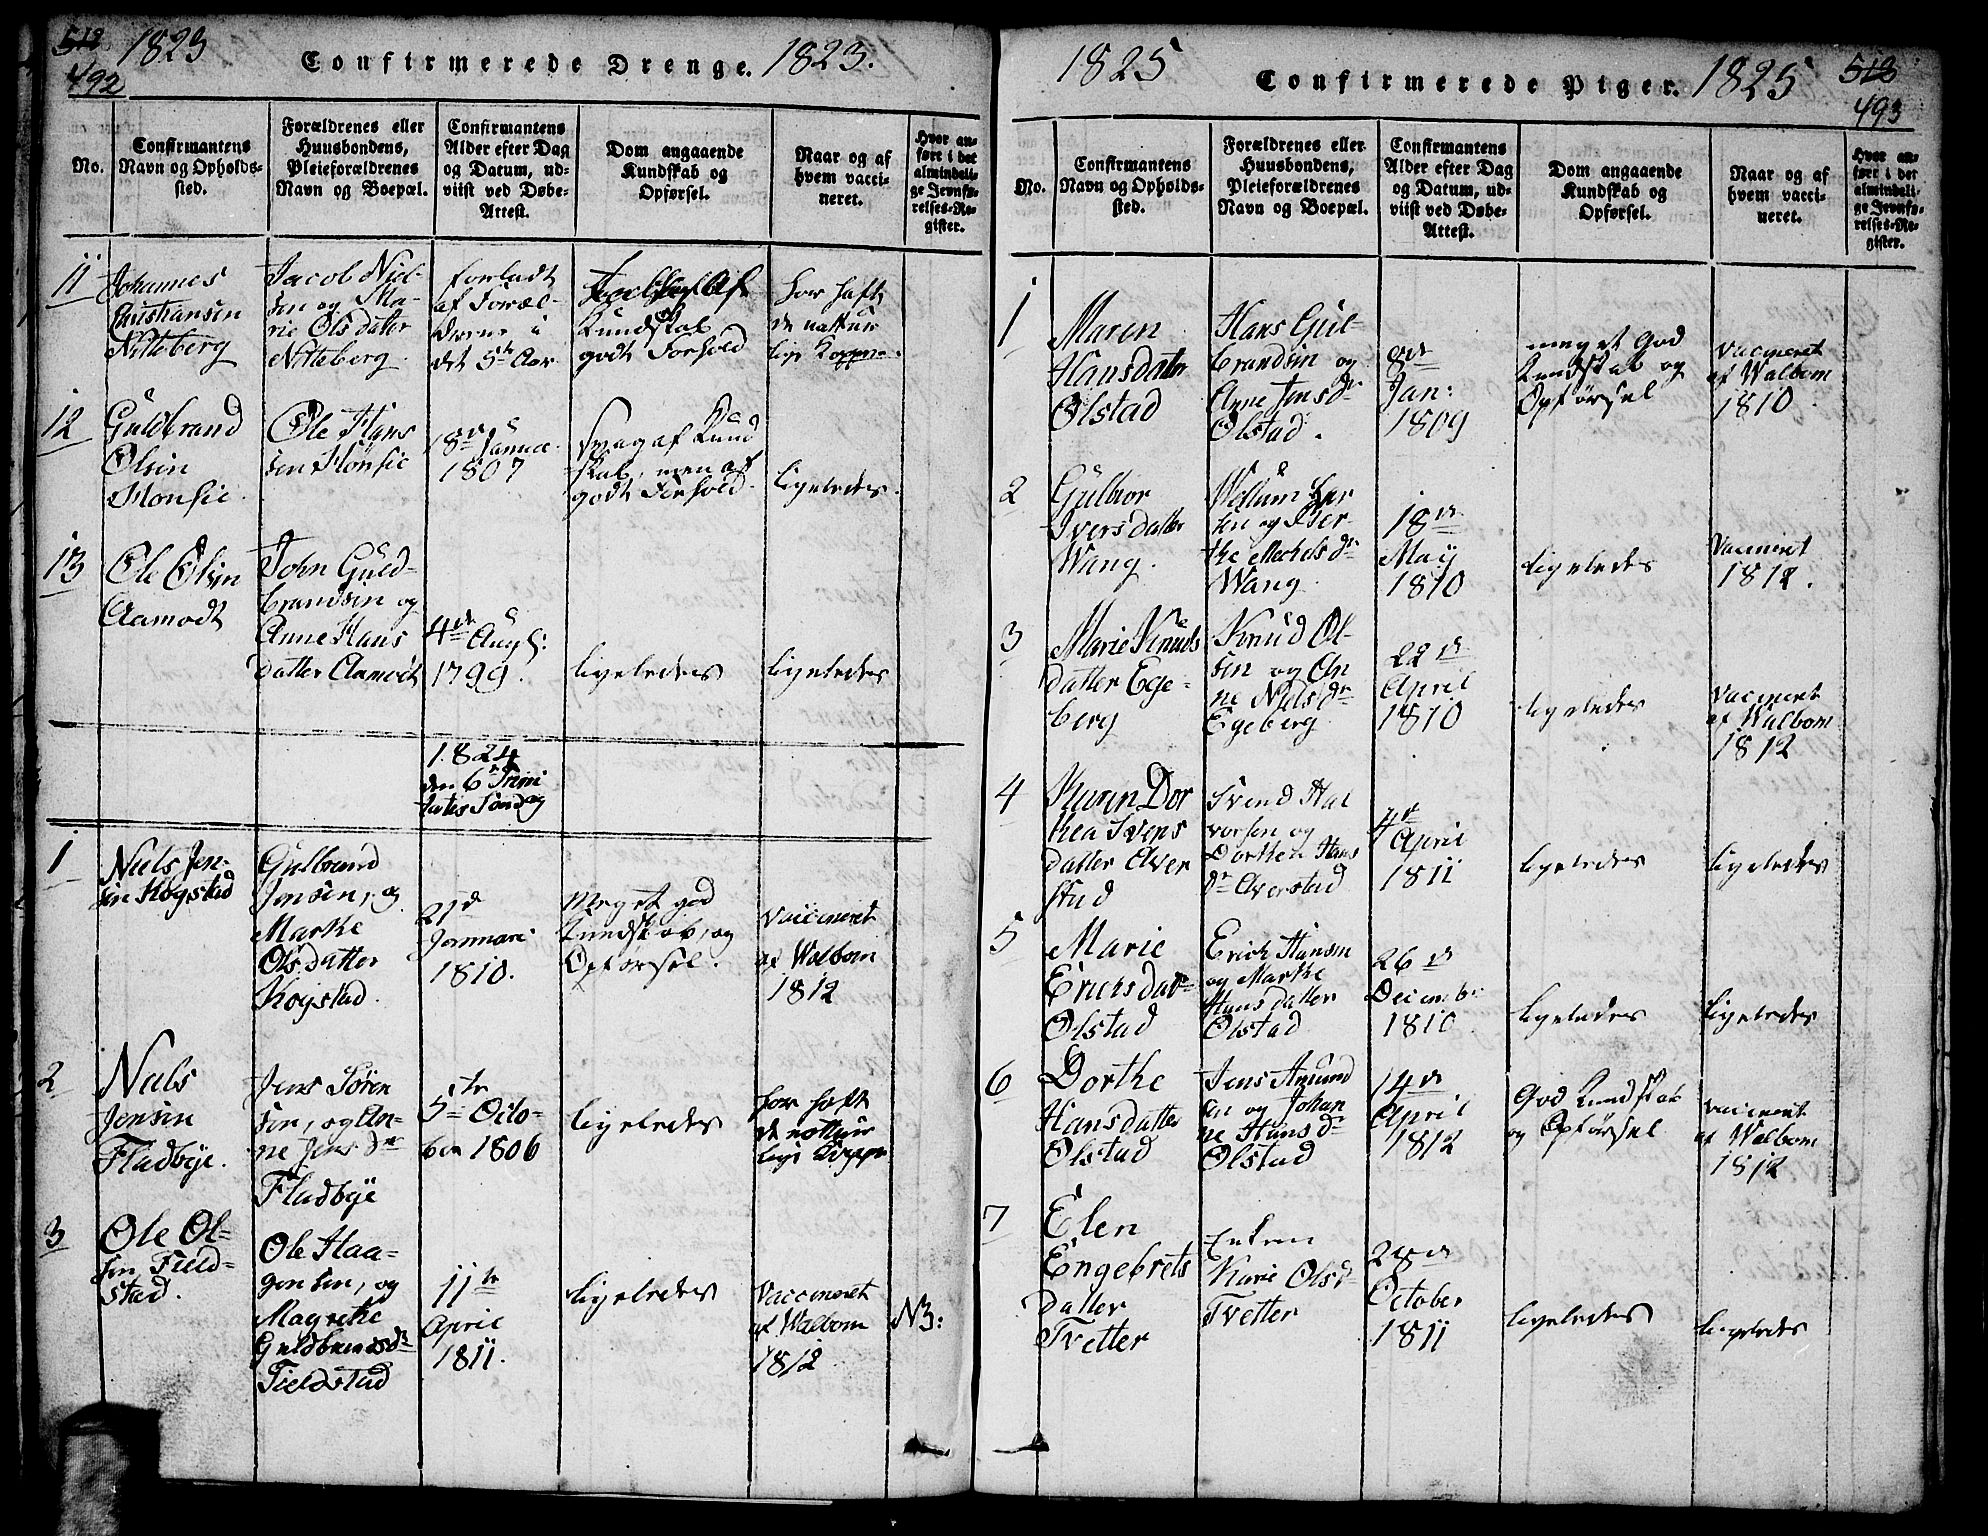 512 1823 Confirmerede Drenge. 1823.
492
No.
Confirmantens
Navn og Opholds-
sted.
Forældrenes eller
Huusbondens,
Pleieforældrenes
Navn og Boepæl.
Confirmantens
Alder efter Dag
og Datum, ud-
viist ved Døbe-
Attest.
Dom angaaende
Kundskab og
Opførsel.
Naar og af
hvem vacci-
neret.
Hvor an-
ført i det
almindeli-
ge Jevnfø-
relses-Re-
gister.
11
Johannes
Christiansen
Nitteberg
Jacob Niel-
sen og Ma-
rie Olsdatter
Nitteberg.
forladt
af Foræl-
drene i
det 5te Aar
Kundskab
godt Forhold
har haft
de nattur
lige Kopper.
12
Guldbrand
Olsen
Monsie.
Ole Hans
sen Monsie
18de Janua
1807
svag af Kund
skab, men af
godt Forhold.
ligeledes.
13
Ole Olsen
Aamodt
John Guld-
brandsen og
Anne Hans
datter Aamodt
4de Augs:
1799.
ligeledes
ligeledes
1824
den 6te Trini
tatis Søndag
1
Niels Jen-
sen Kogstad
Gulbrand
Jensen, og
Marthe
Olsdatter
Kogstad.
21de
Jannuari
1810.
Meget god
Kundskab, og
Opførsel.
Vaccineret
af Walbom
1812
2
Niels
Jensen
Fladbye.
Jens Søren
sen, og An-
ne Jens dr
Fladbye
5te Octo-
ber 1806
ligeledes
har haft
de nattur
lige Kopper
3
Ole Ol-
sen Field-
stad.
Ole Haa-
gensen, og
Magrethe
Guldbransdr
Fieldstad
11te
April
1811.
ligeledes
Vaccineret
af Walbom
1812
N3:
1825 Confirmerede Piger. 1825 513
493
No.
Confirmantens
Navn og Opholds-
sted.
Forældrenes eller
Huusbondens,
Pleieforældrenes
Navn og Boepæl.
Confirmantens
Alder efter Dag
og Datum, ud-
viist ved Døbe-
Attest.
Dom angaaende
Kundskab og
Opførsel.
Naar og af
hvem vacci-
neret.
Hvor an-
ført i det
almindeli-
ge Jevnfø-
relses-Re-
gister.
1
Maren
Hansdatter
Olstad
Hans Gul-
brandsen og
Anne Jensdr
Olstad.
8de
Jan:
1809
meget God
Kundskab og
Opførsel
Vaccineret
af Walbom
1810.
2
Gulbor
Iversdatter
Wang.
sen og Ber-
the Mechelsdr
Wang
18de
Maij
1810
ligeledes
Vaccineret
1812.
3
Marie Knuds
datter Ege-
berg
Knud Ol-
sen og An
ne Nielsdr
Egeberg
22de
April
1810
ligeledes
Vaccineret
af Walbom
1812
4
Karen Dor
thea Svens
datter Aver
stad
Svend Hal
vorsen og
Dorthea Hans
dr Averstad
4de
April
1811
ligeledes
ligeledes
5
Marie
Erichsdatr
Olstad
Erich Hansen
og Marthe
Hansdatter
Olstad
26de
Decembr
1810
ligeledes
ligeledes
6
Dorthe
Hansdatter
Olstad
Jens Amund
sen og Johan
ne Hansdr
Olstad
14de
April
1812
God Kundskab
og Opførsel
Vaccineret
af Walbom
1812
7
Elen
Engebrets
datter
Tvetter
Enken
Karie Olsd
Tvetter
28de
October
1811
ligeledes
ligeledes